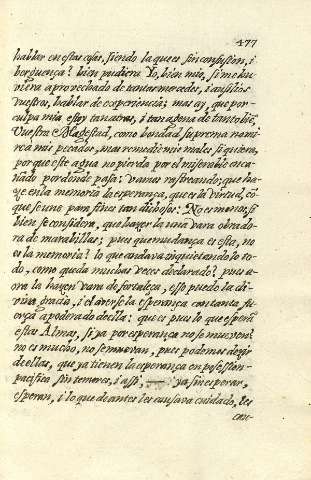 477
hablar en estas cosas, siendo la que es sin confusion, i
berguença? bien pudiera Yo, bien mio, si me hu
viera aprovechado de tantas mercedes, i ausilios
vuestros, hablar de experiencia; mas ay, que por
culpa mia estoy tan atras, i tan agena de tanto bie,
Vuestra Magestad, como bondad suprema no mi
re a mas pecador, mas remedie mis males si quiera,
porque este agua no pierda por el miserable enca
ñado por donde pasa: vamos rastreando; que ha
ze en la memoria la esperança, que es la virtud, co
que se une para fines tan dichosos: No es menos, si
bien se considera, que hazer la una vara obrado
ra de marabillas; pues que mudança es esta, no
es la memoria? lo que andava inquietandolo to
do, como queda muchas veces declarado? pues a
ora la hazen vara de fortaleza, esso puede la di
vina gracia, i el averse la esperança con tanta fu
erça apoderado de ella: que es pues lo que espera
estas Almas, si ya por esperança no se mueven?
no es mucho, no se muevan, pues podemos dezir
de ellas, que ya tienen la esperança en possession
pacifica, sin temores, i assi, ya sin esperar,
esperan, i lo que de antes les causava cuidado, les
cau-